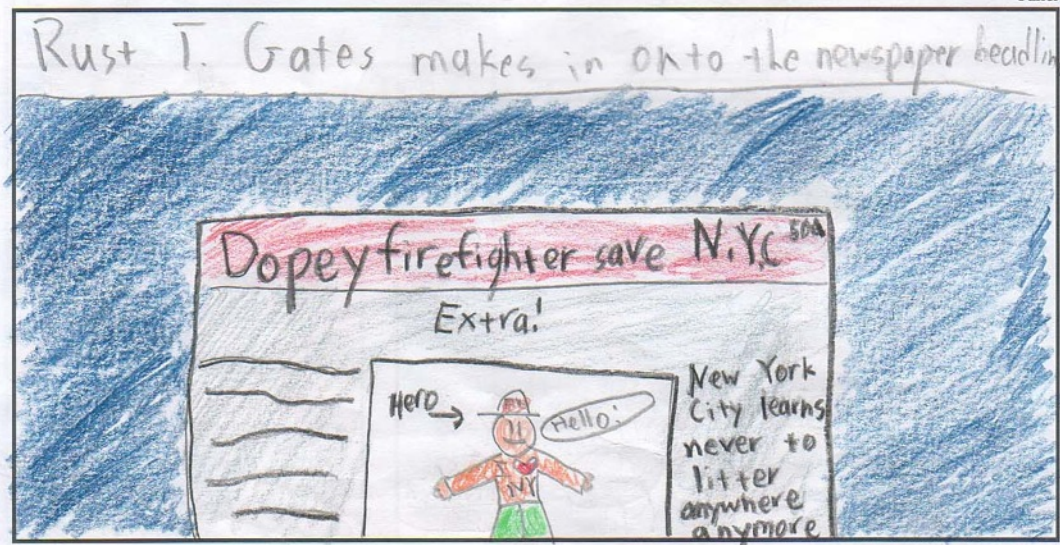 Rust T. Gates makes in onto the newspaper headlin
Dopey firefighter save N.Y.C 50¢
Extra!
Hero
Hello!
NY
New York
City learns
never to
litter
anywhere
anymore